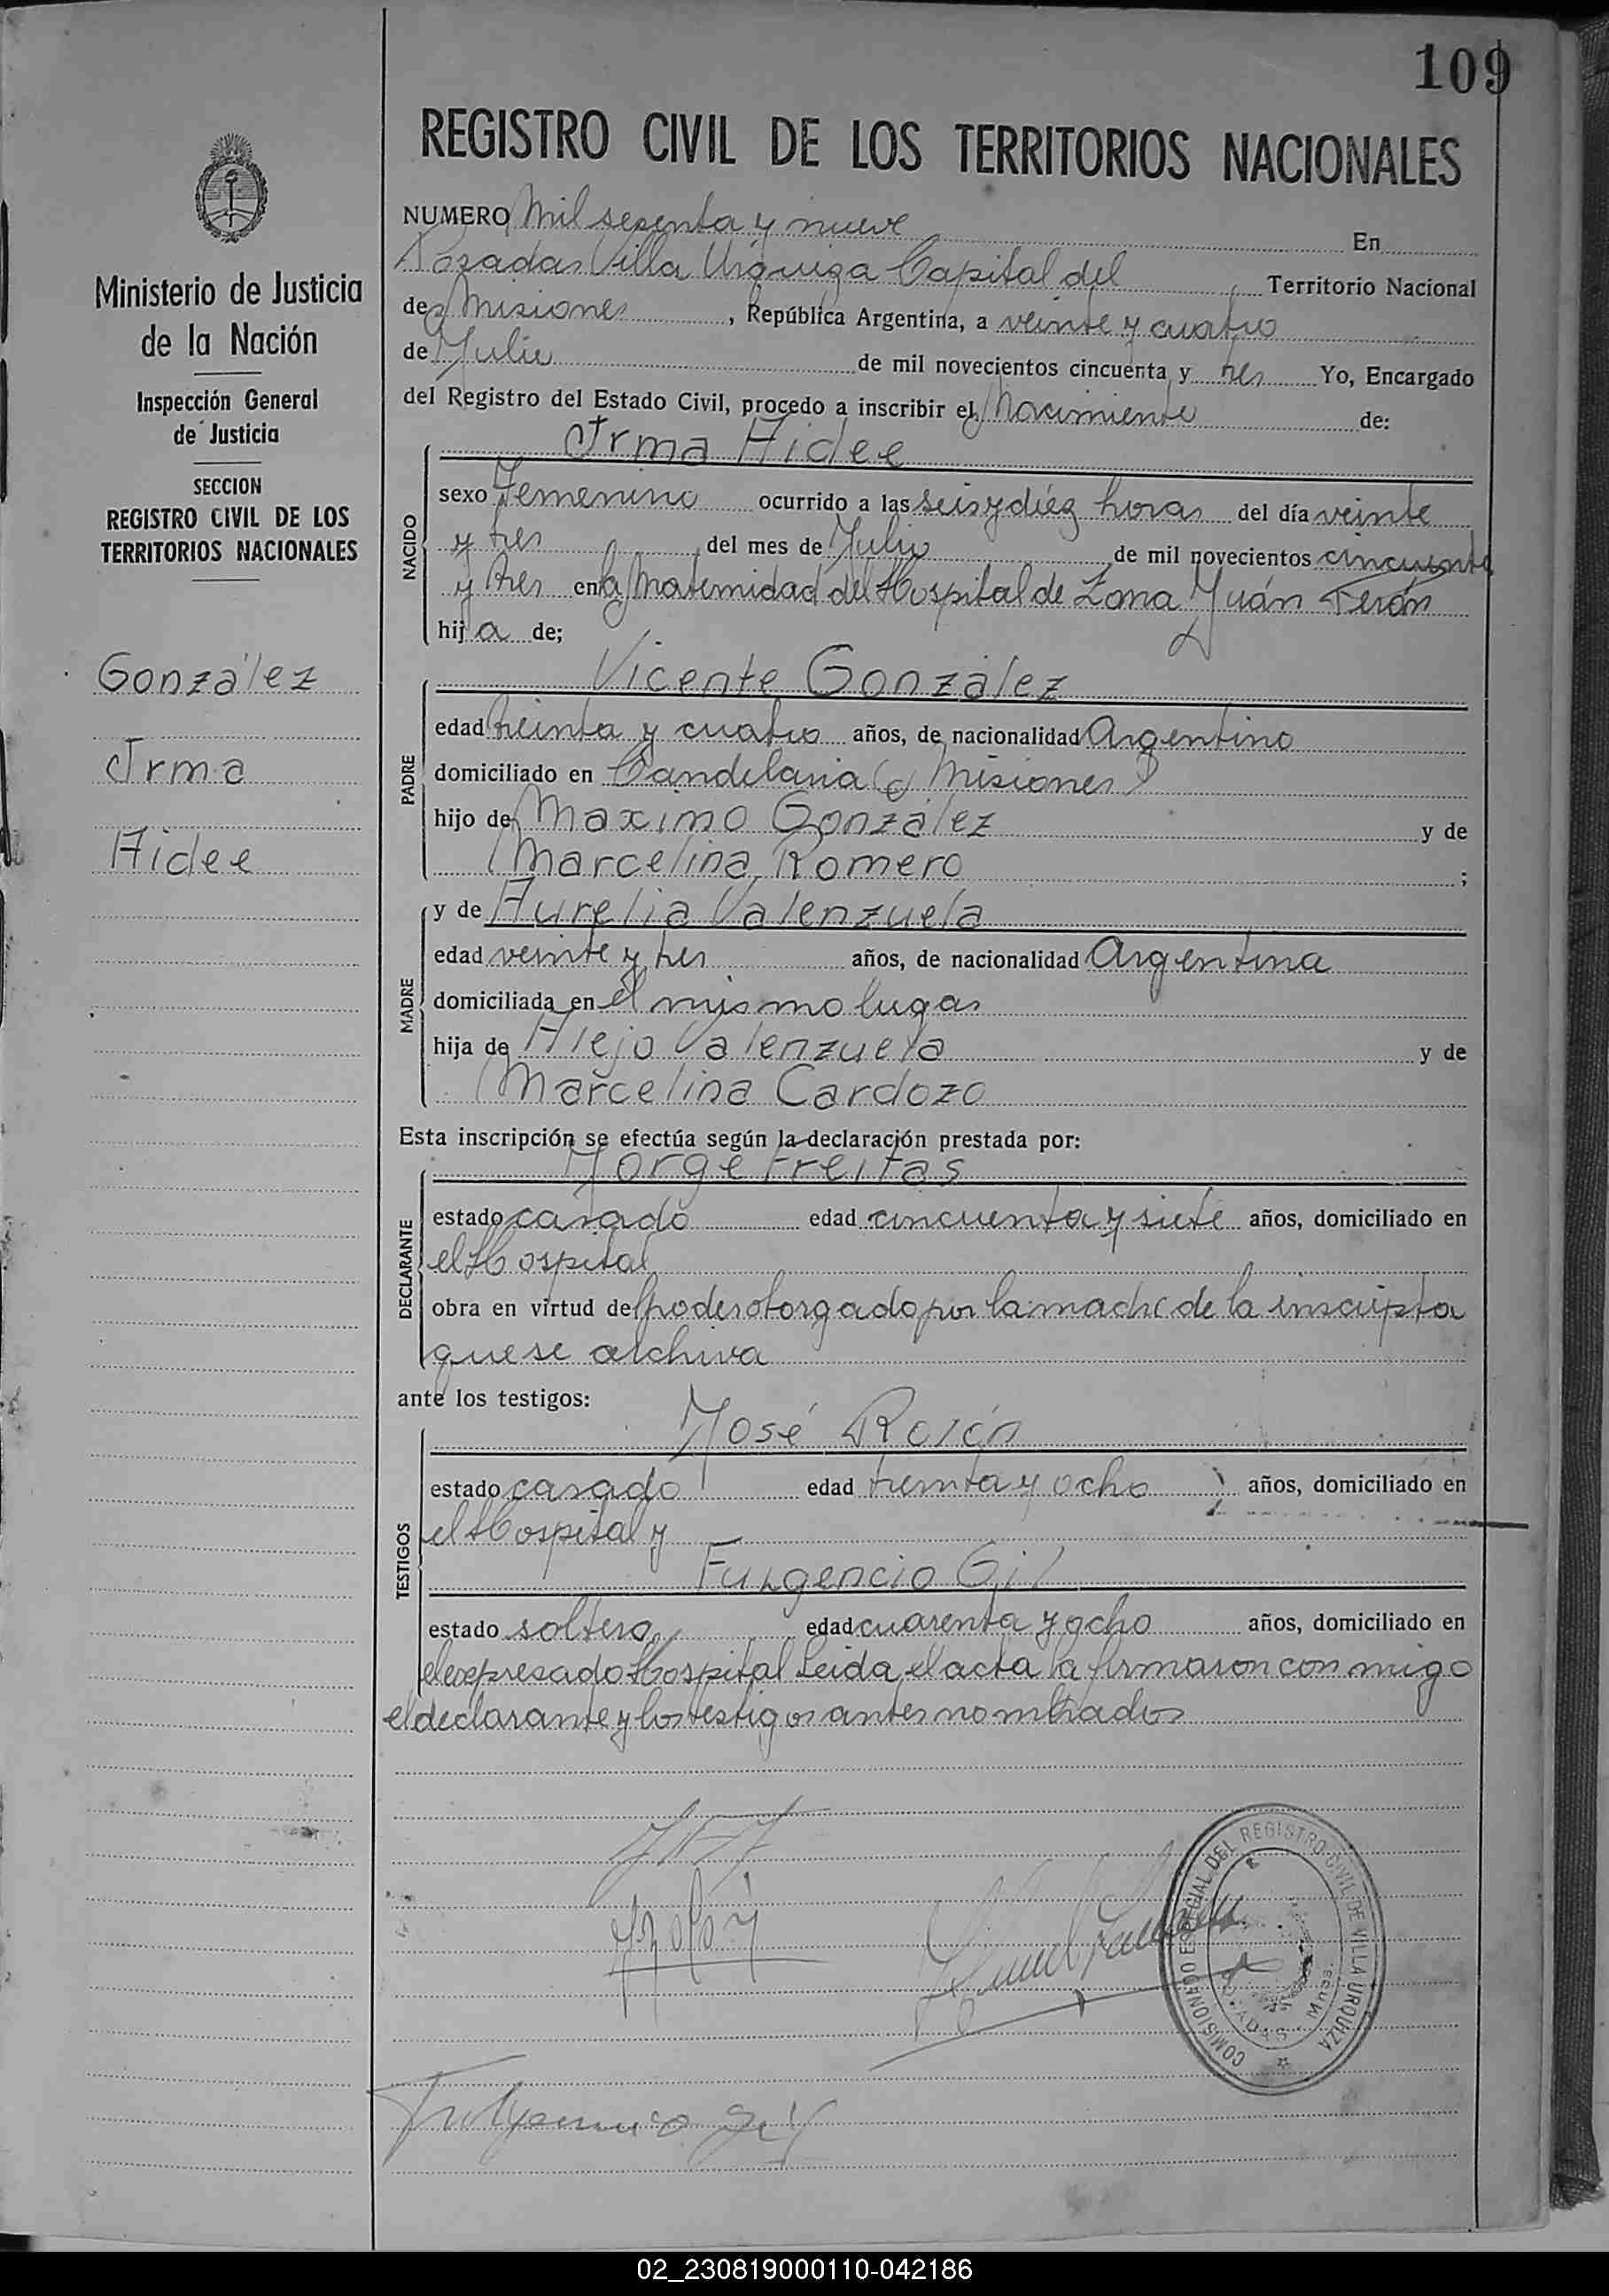 109
REGISTRO CIVIL DE LOS TERRITORIOS NACIONALES
Ministerio de Justicia
de la Nación
Inspección General
de Justicia
SECCION
REGISTRO CIVIL DE LOS
TERRITORIOS NACIONALES
González
Irma
Aidee
NUMERO Mil sesenta y nueve En
Posadas Villa Urquiza Capital del Territorio Nacional
de Misiones, República Argentina, a veinte y cuatro
de Julio de mil novecientos cincuenta y tres Yo, Encargado
del Registro del Estado Civil, procedo a inscribir el Nacimiento de:
NACIDO
Irma Aidee
sexo Femenino ocurrido a las seis y diéz horas del día veinte
y tres del mes de Julio de mil novecientos cincuenta
y tres en la Maternidad del Hospital de Zona Juán Terón
hija de;
PADRE
Vicente González
edad treinta y cuatro años, de nacionalidad Argentino
domiciliado en Candelaria (Misiones)
hijo de Maximo González y de
Marcelina Romero ;
MADRE
y de Aurelia Valenzuela
edad veinte y tres años, de nacionalidad Argentina
domiciliada en el mismo lugar
hija de Alejo Valenzuela y de
Marcelina Cardozo
Esta inscripción se efectúa según la declaración prestada por:
DECLARANTE
Jorge Freitas
estado casado edad cincuenta y siete años, domiciliado en
el Hospital
obra en virtud del poder otorgado por la madre de la inscripta
que se archiva
ante los testigos:
TESTIGOS
José Rolón
estado casado edad treinta y ocho años, domiciliado en
el Hospital y
Fulgencio Gil
estado soltero edad cuarenta y ocho años, domiciliado en
el expresado Hospital Leida el acta la firmaron con migo
el declarante y los testigos antes nombrados
Fulgencio Gil
COMISIONADO ESPECIAL DEL REGISTRO CIVIL DE VILLA URQUIZA
POSADAS - Mnes.
02_230819000110-042186